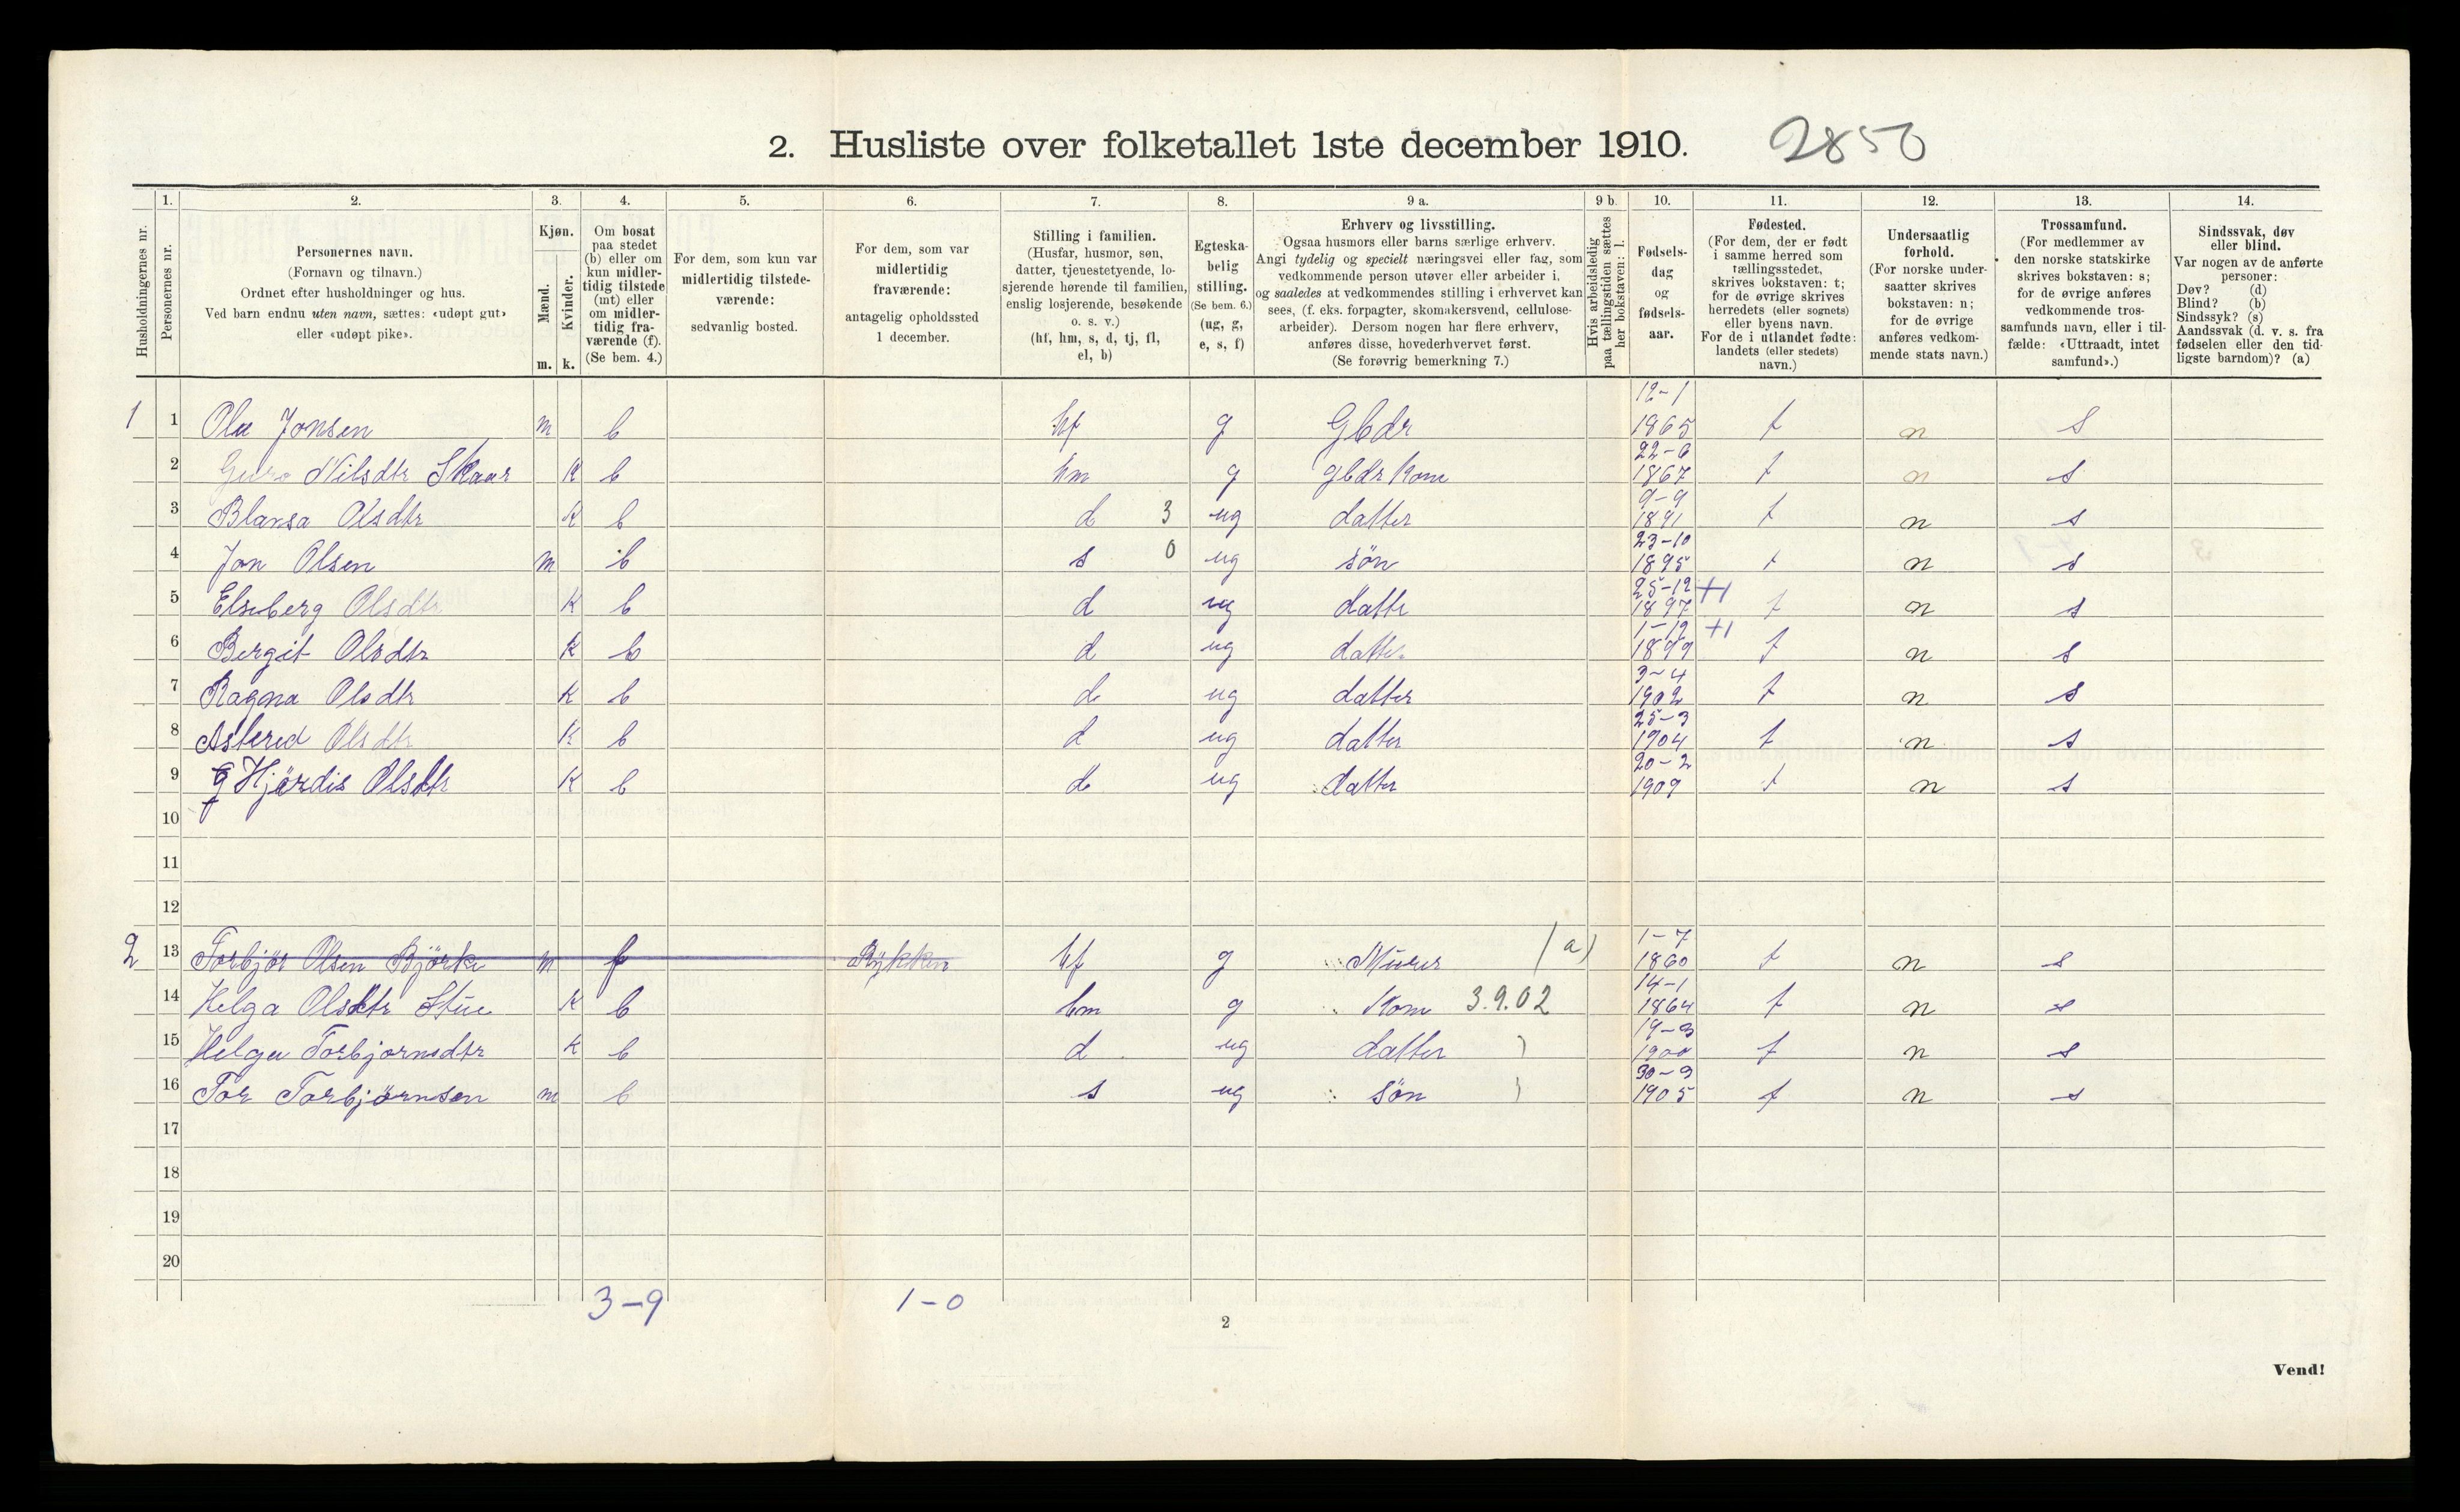 2. Husliste over folketallet 1ste december 1910. 2850
Husholdningernes nr.
1. Personernes nr.
2. Personernes navn. (Fornavn og tilnavn.) Ordnet efter husholdninger og hus. Ved barn endnu uten navn, sættes: «udøpt gut» eller «udøpt pike».
3. Kjøn. Mænd. m. Kvinder. k.
4. Om bosat paa stedet (b) eller om kun midlertidig tilstede (mt) eller om midlertidig fraværende (f). (Se bem. 4.)
5. For dem, som kun var midlertidig tilstedeværende: sedvanlig bosted.
6. For dem, som var midlertidig fraværende: antagelig opholdssted 1 december.
7. Stilling i familien. (Husfar, husmor, søn, datter, tjenestetyende, losjerende hørende til familien, enslig losjerende, besøkende o. s. v.) (hf, hm, s, d, tj, fl, el, b)
8. Egteskabelig stilling. (Se bem. 6.) (ug, g, e, s, f)
9 a. Erhverv og livsstilling. Ogsaa husmors eller barns særlige erhverv. Angi tydelig og specielt næringsvei eller fag, som vedkommende person utøver eller arbeider i, og saaledes at vedkommendes stilling i erhvervet kan sees, (f. eks. forpagter, skomakersvend, cellulosearbeider). Dersom nogen har flere erhverv, anføres disse, hovederhvervet først. (Se forøvrig bemerkning 7.)
9 b. Hvis arbeidsledig paa tællingstiden sættes her bokstaven: l.
10. Fødselsdag og fødselsaar.
11. Fødested. (For dem, der er født i samme herred som tællingsstedet, skrives bokstaven: t; for de øvrige skrives herredets (eller sognets) eller byens navn. For de i utlandet fødte: landets (eller stedets) navn.)
12. Undersaatlig forhold. (For norske undersaatter skrives bokstaven: n; for de øvrige anføres vedkommende stats navn.)
13. Trossamfund. (For medlemmer av den norske statskirke skrives bokstaven: s; for de øvrige anføres vedkommende trossamfunds navn, eller i tilfælde: «Uttraadt, intet samfund».)
14. Sindssvak, døv eller blind. Var nogen av de anførte personer: Døv? (d) Blind? (b) Sindssyk? (s) Aandssvak (d. v. s. fra fødselen eller den tidligste barndom)? (a)
1 1 Ola Jonsen m b hf g Gbdr 12-1 1865 t n s
2 Guro Nilsdtr Skaar K b hm g gbdr kone 22-6 1867 t n s
3 Olsdtr K b d 3 ug datter 9-9 1891 t n s
4 Jon Olsen m b s 0 ug søn 23-10 1895 t n s
5 Elseberg Olsdtr K b d ug datte 25-12 1897 +1 t n s
6 Bergit Olsdtr K b d ug datter 1-12 1899 +1 t n s
7 Ragna Olsdtr K b d ug datter 3-4 1902 t n s
8 Astered Olsdtr K b d ug datter 25-3 1904 t n s
9 Hjördis Olsdtr K b d ug datter 20-2 1909 t n s
10
11
12
2 13 Torbjør Olsen Björke m f Rykken hf g Murer (a) 1-7 1860 t n s
14 Helga Olsdtr Stue K b hm g Kone 3.9.02 14-1 1864 t n s
15 Helga Torbjornsdtr K b d ug datter 19-3 1900 t n s
16 Tor Torbjörnsen m b s ug søn 30-9 1905 t n s
17
18
19
20
3-9 1-0
2
Vend!